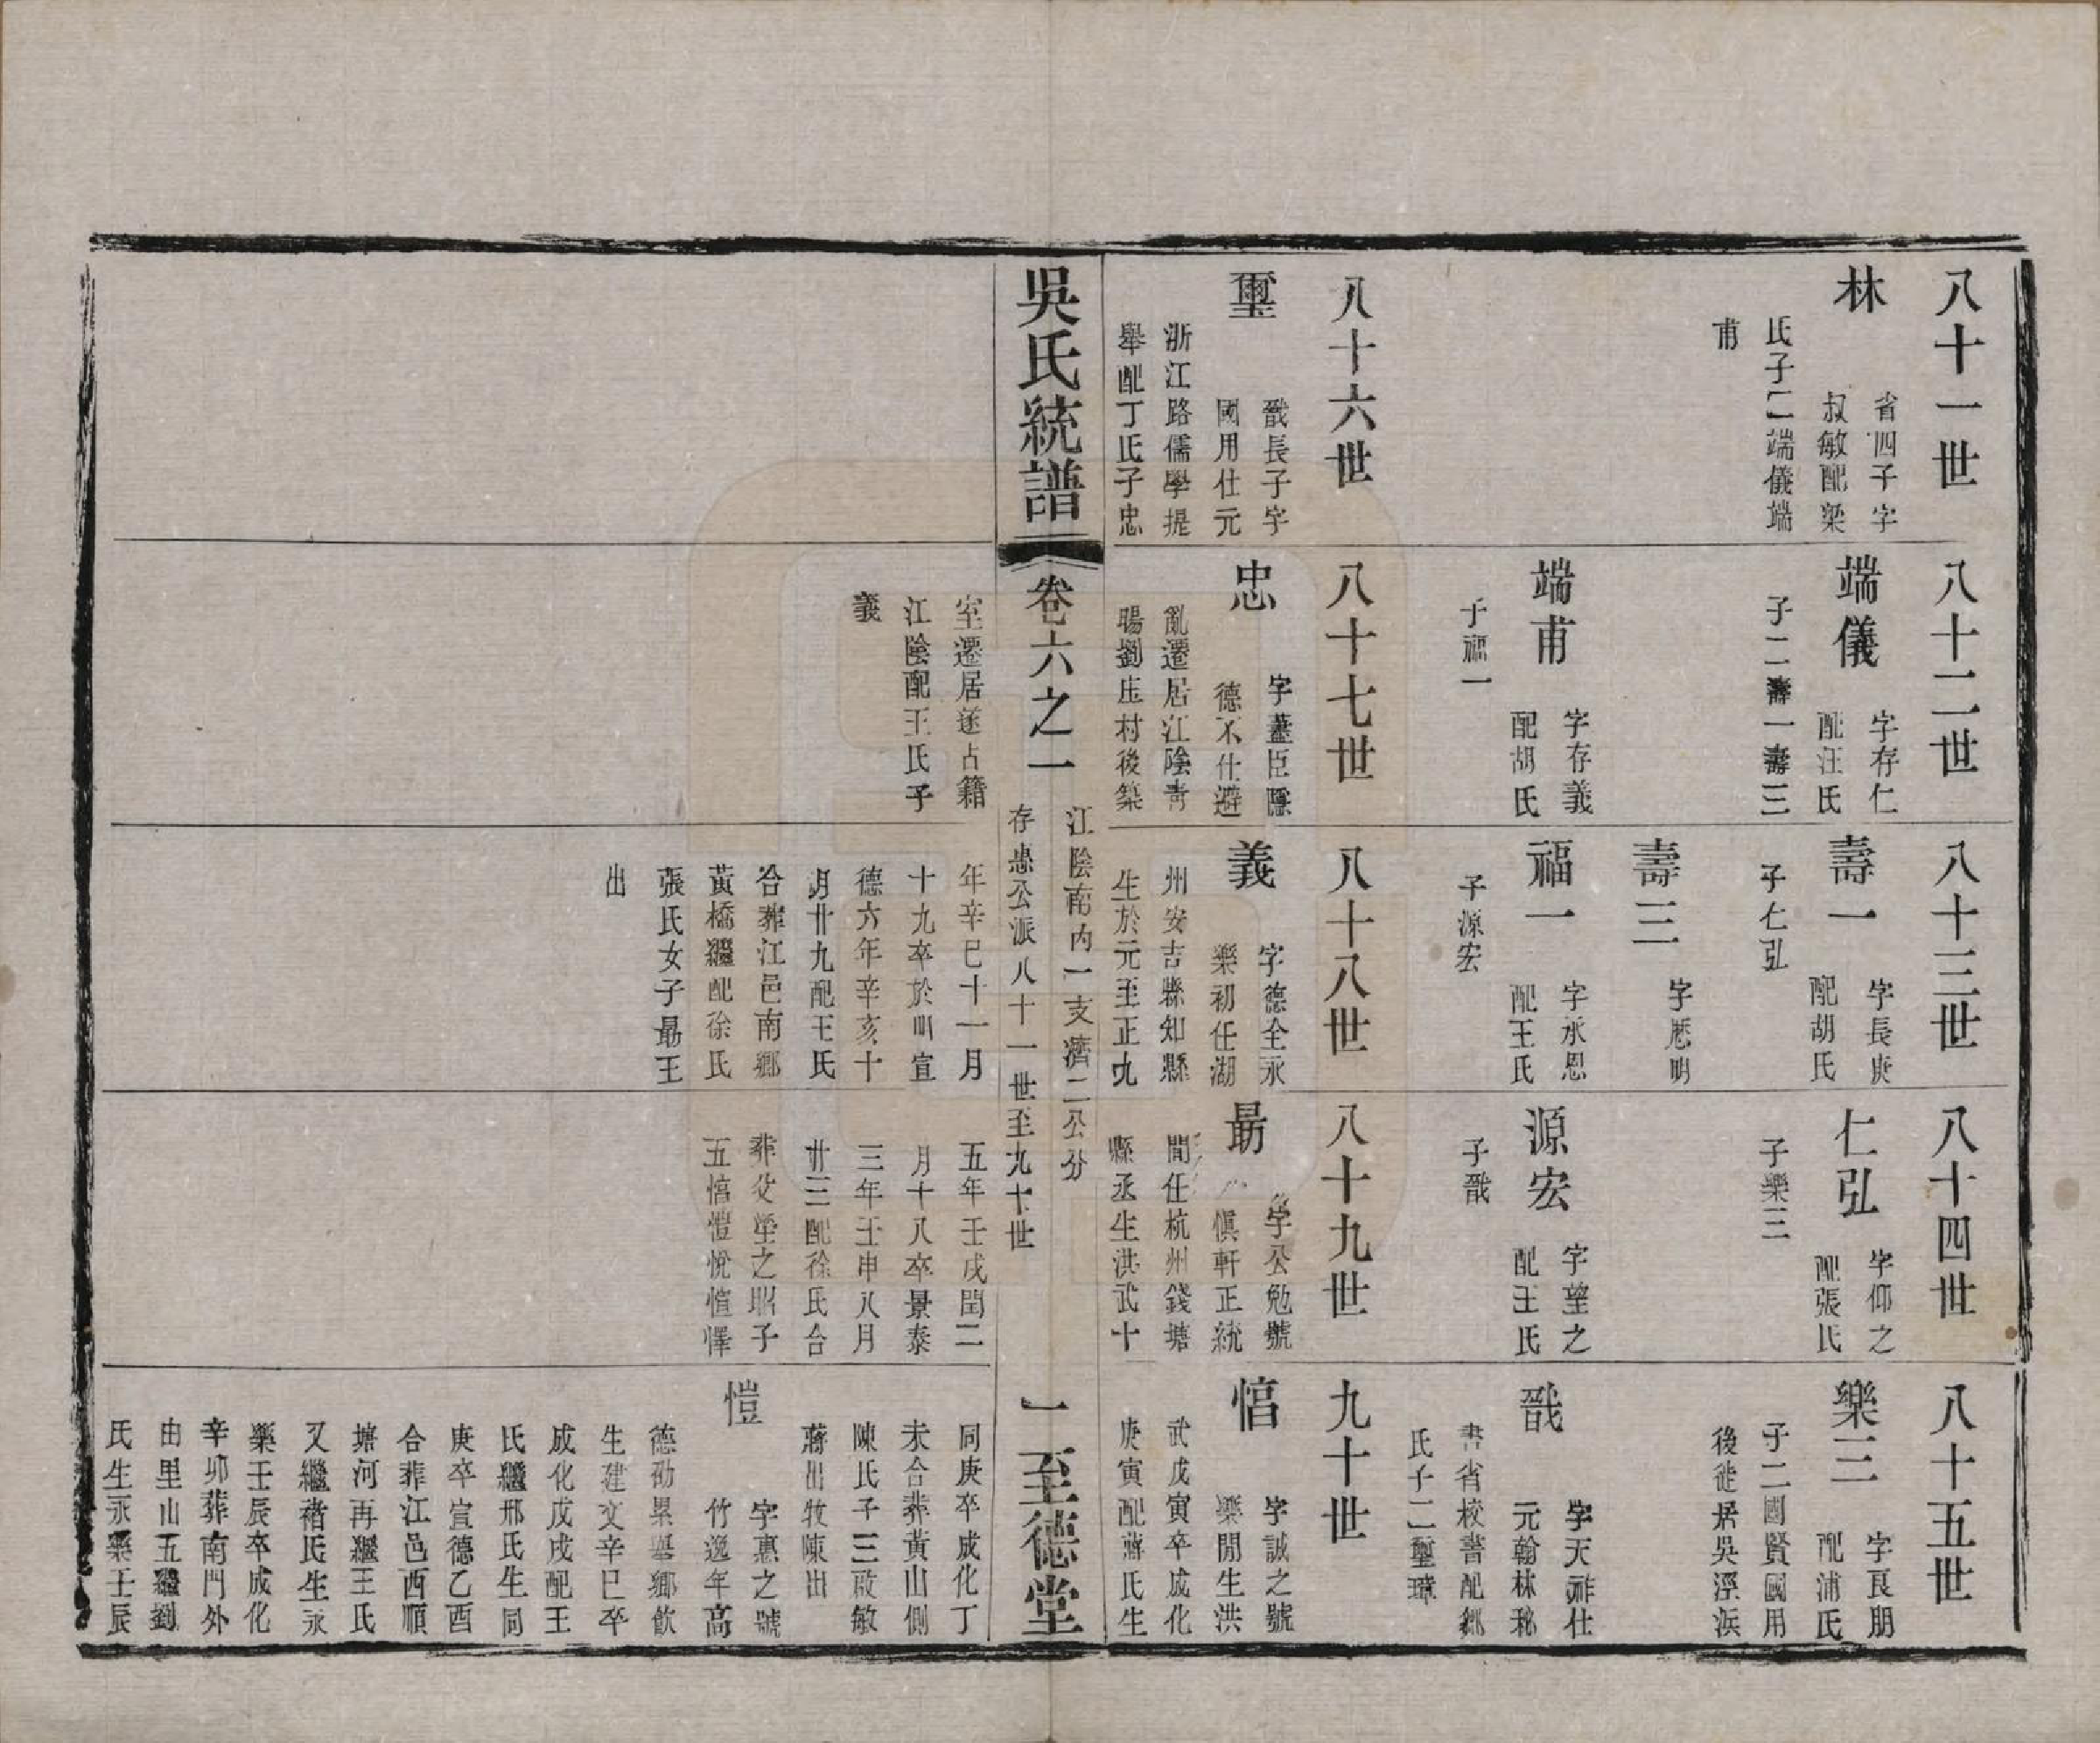 八十一世
林
省四子字
叔敏配梁
氏子二端儀端
甫
八十二世
端儀
字存仁
配汪氏
子二壽一壽三
端甫
字存義
配胡氏
子福一
八十三世
壽一
字長庚
配胡氏
子仁弘
壽三
字愿明
福一
字永恩
配王氏
子源宏
八十四世
仁弘
字仰之
配張氏
子樂三
源宏
字望之
配王氏
子戩
八十五世
樂三
字良朋
配浦氏
子二國賢國用
後徙居吳涇浜
戩
字天祚仕
元翰林秘
書省校書配鄒
氏子二璽璋
八十六世
璽
戩長子字
國用仕元
浙江路儒學提
舉配丁氏子忠
八十七世
忠
字藎臣隱
德不仕避
亂遷居江陰青
暘劉庄村後築
室遷居遂占籍
江陰配王氏子
義
八十八世
義
字德全永
樂初任湖
州安吉縣知縣
生於元至正九
年辛巳十一月
十九卒於明宣
德六年辛亥十
月廿九配王氏
合葬江邑南鄉
黃橋繼配徐氏
張氏女子勗王
出
八十九世
勗
字公勉號
慎軒正統
間任杭州錢塘
縣丞生洪武十
五年壬戌閏二
月十八卒景泰
三年壬申八月
廿三配徐氏合
葬父塋之昭子
五愭愷悅愃懌
九十世
愭
字誠之號
樂閒生洪
武戊寅卒成化
庚寅配蔣氏生
同庚卒成化丁
未合葬黃山側
陳氏子三敔敏
蔣出牧陳出
愷
字惠之號
竹逸年高
德劭累舉鄉飲
生建文辛巳卒
成化戊戌配王
氏繼邢氏生同
庚卒宣德乙酉
合葬江邑西順
塘河再繼王氏
又繼褚氏生永
樂壬辰卒成化
辛卯葬南門外
由里山五繼劉
氏生永樂壬辰
吳氏統譜
卷六之一
江陰南內一支濟二公分
存惠公派八十一世至九十世
一
至德堂